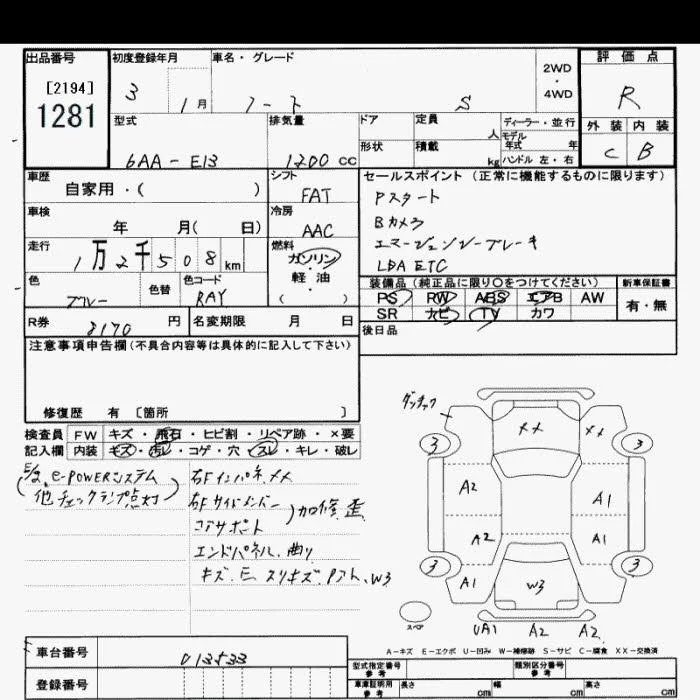 出品番号
[2194]
1281
初度登録年月
3 1月
車名・グレード
ノート S
2WD
・
4WD
評価点
R
外装 内装
C B
型式
6AA-E13
排気量
1200 cc
ドア
定員
人
ディーラー・並行
モデル
年式 年
形状
積載
kg
ハンドル 左・右
車歴
自家用・( )
シフト
FAT
セールスポイント (正常に機能するものに限ります)
Pスタート
Bカメラ
エマージェンシーブレーキ
LDA ETC
車検
年 月( 日)
冷房
AAC
走行
1万2千508km
燃料
ガソリン
・
軽・油
( )
色
ブルー
色替
色コード
RAY
装備品 (純正品に限り○をつけてください)
PS RW ABS エアB AW
SR ナビ TV カワ
新車保証書
有・無
R券
8170 円
名変期限 月 日
後日品
注意事項申告欄(不具合内容等は具体的に記入して下さい)
修復歴 有 〔箇所 〕
検査員 FW キズ・飛石・ヒビ割・リペア跡・×要
記入欄 内装 キズ・汚レ・コゲ・穴・スレ・キレ・破レ
e-POWERシステム
(他チェックランプ点灯)
右Fインパネ メメ
右Fサイドメンバー
コアサポート )加修 歪
エンドパネル 曲り
キズ.E.スリキズ.Pアト.W3
3 メメ メメ 3
A2 A1
A2 A1
3 A1 W3 A1 3
スペア
UA1 A2 A2
A-キズ E-エクボ U-凹み W-補修跡 S-サビ C-腐食 XX-交換済
車台番号
013533
登録番号
型式指定番号
参考
類別区分番号
参考
車庫証明用
参考
長さ cm
幅 cm
高さ cm